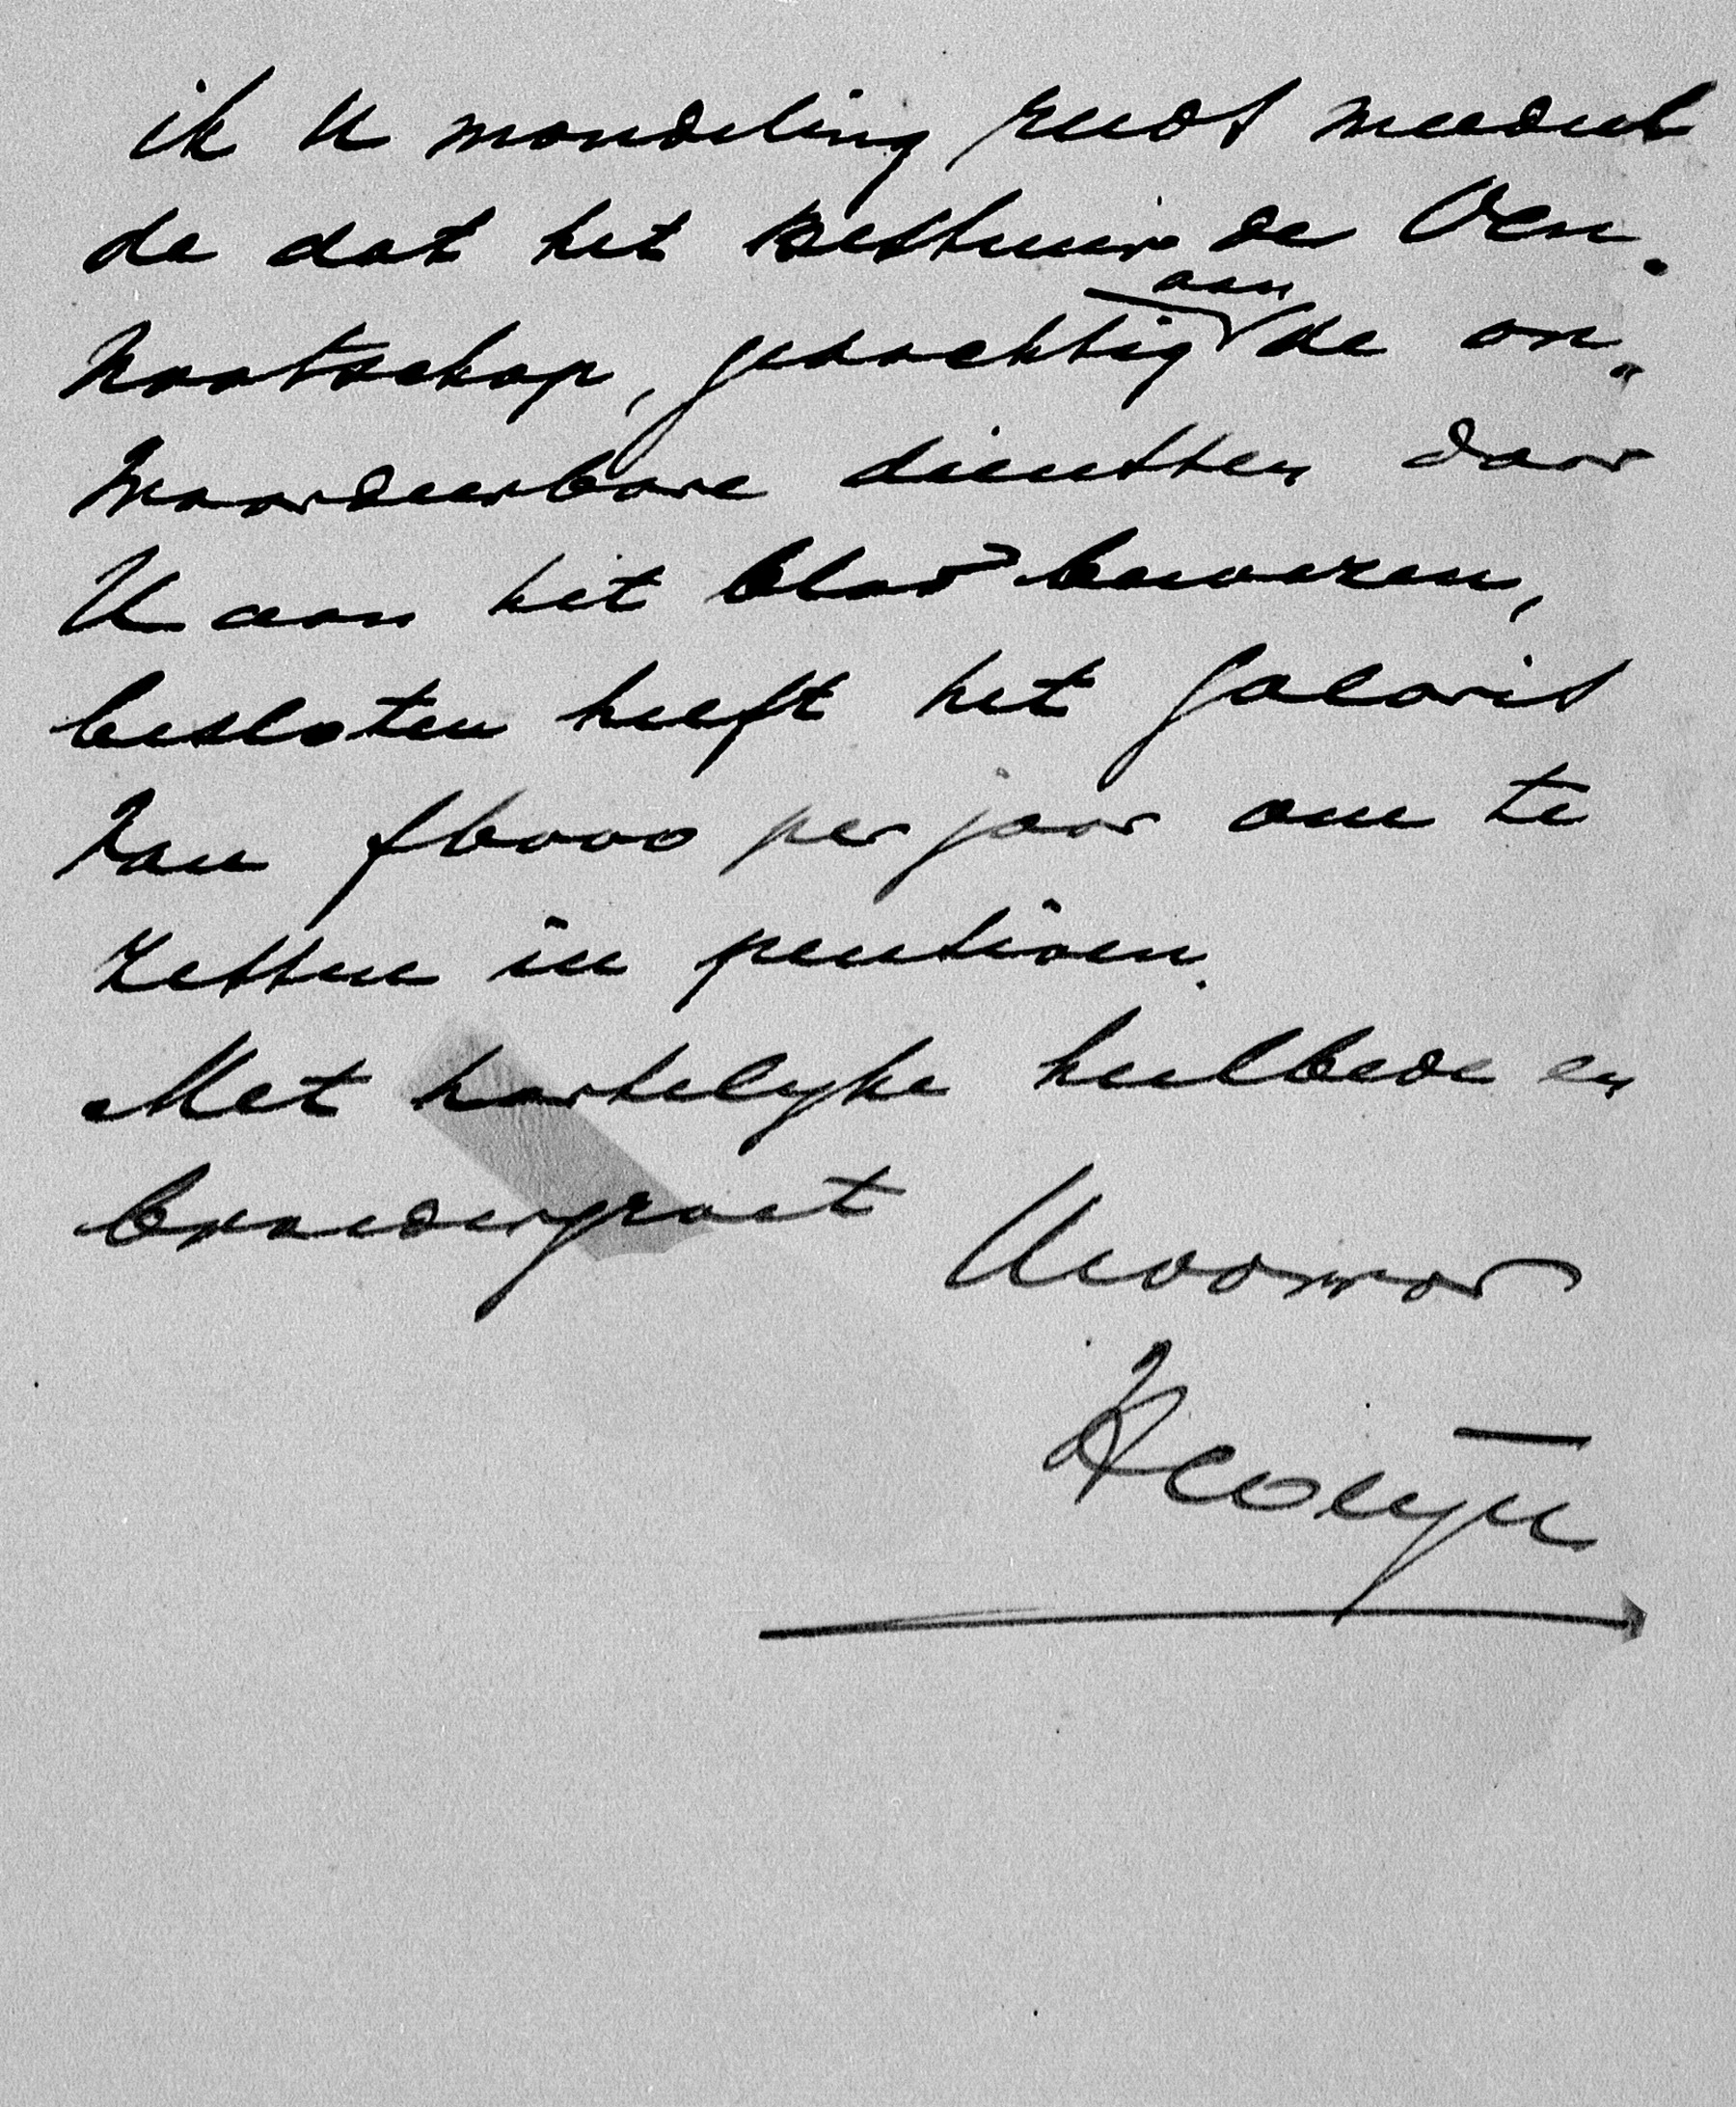 ik U mondeling reeds meedeel
de dat het Bestuur der Ven.
nootschap, gedachtig aan de on„
waardeerbare diensten door
U aan het blad bewezen,
besloten heeft het salaris
van f6000 per jaar om te
zetten in pensioen.
Met hartelyke heilbede en
broedergroet
Uwdwvr
HColyn